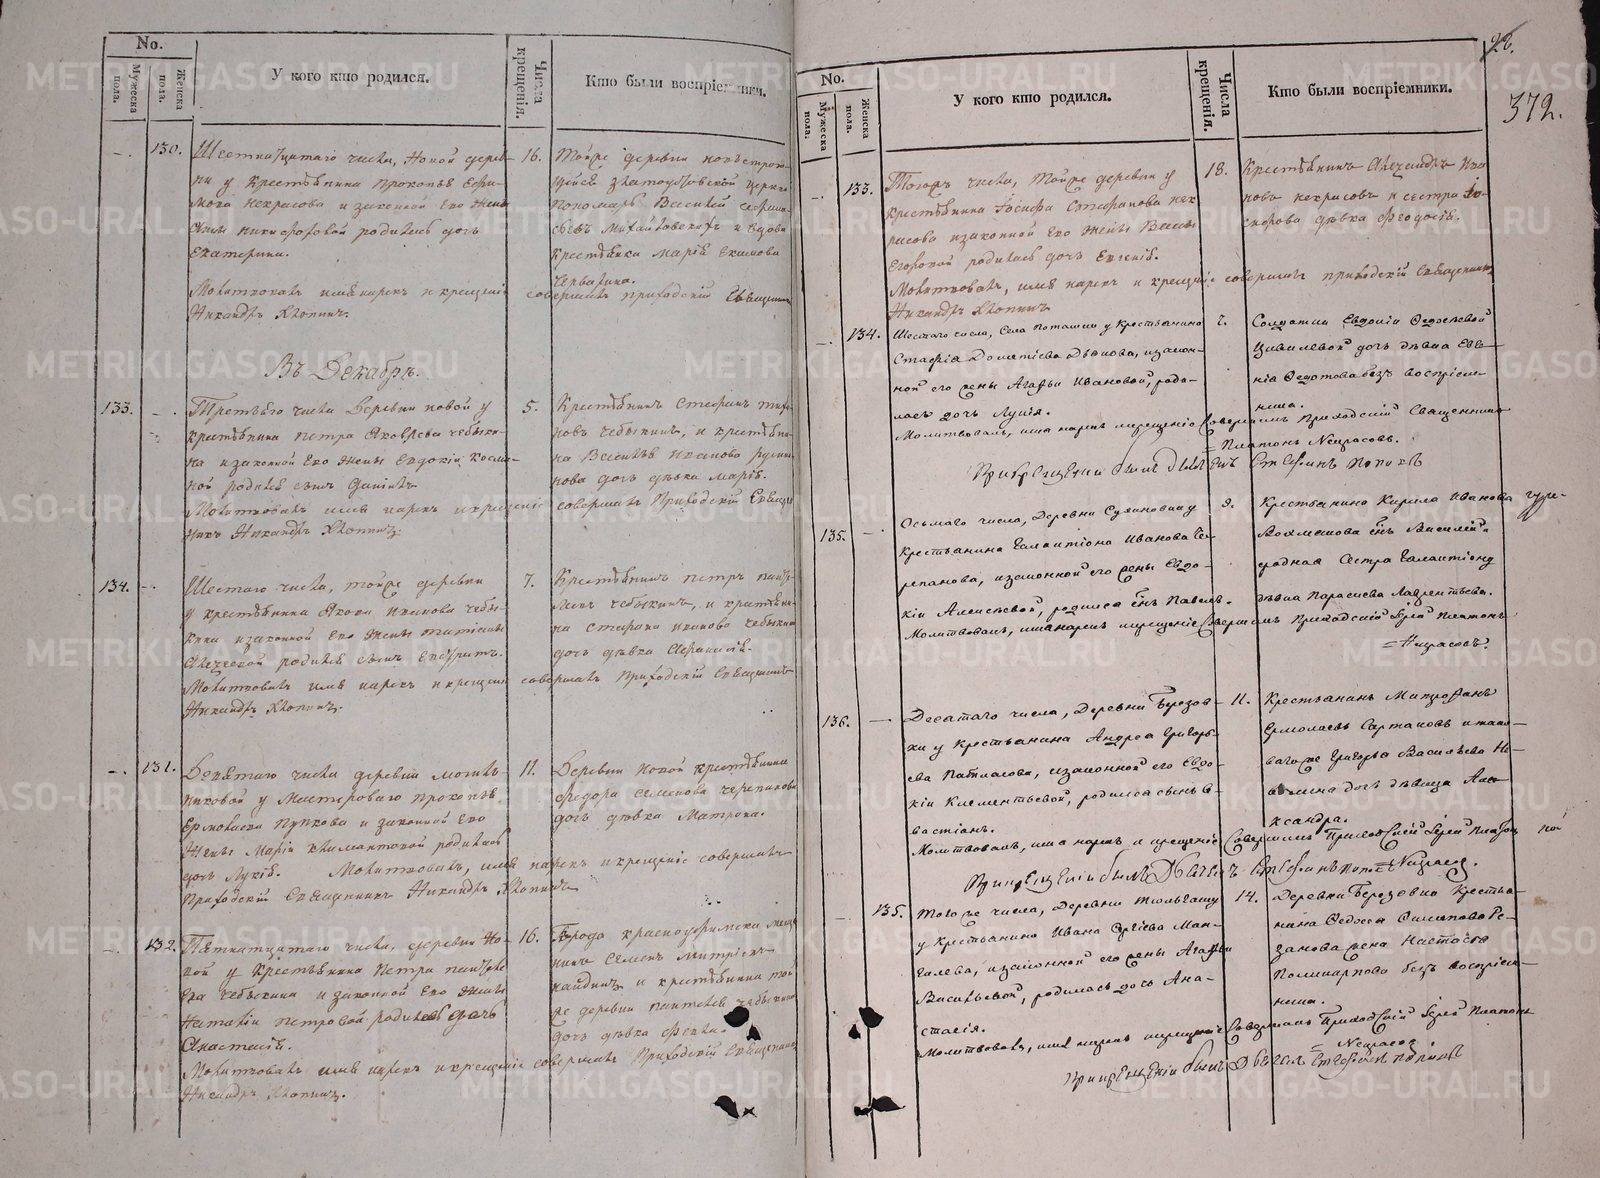 No.
Мужеска пола.
Женска пола.
У кого кто родился.
Числа крещенія.
Кто были воспріемники.
130.
Шестнатцатаго числа, Новой дерев-
ни у Крестьянина Прокопья Ефи-
мова Некрасова и законной Его жены
Никифоровой родилась дочь
Екатерина.
Молитвовалъ имя нарекъ и крещеніе совершалъ приходскій Священникъ
Никандръ Хлопинъ.
16.
Тойже деревни
Златоустовской церкви
Пономарь Василей
и вдова
Крестьянка Марія Екимова
Въ Декабрѣ.
133.
Третьяго числа Деревни новой у
крестьянина Петра Яковлева Чебыки-
на и законной Его жены Евдокіи Косми-
ной родился сынъ Даніилъ
Молитвовалъ имя нарекъ и крещеніе совершалъ Приходскій Священ-
никъ Никандръ Хлопинъ.
5.
Крестьянинъ Стефанъ
Чебыкинъ, и крестьяни-
на Василья Иванова
дочь дѣвка Марія.
134.
Шестаго числа, тойже деревни
у крестьянина Якова Иванова Чебы-
кина и законной Его жены Татіаны
родился сынъ
Молитвовалъ имя нарекъ и крещеніе совершалъ Приходскій Священникъ
Никандръ Хлопинъ.
7.
Крестьянинъ Петръ
Чебыкинъ, и крестьяни-
на Стефана Иванова Чебыкина
дочь дѣвка
131.
Девятаго числа деревни
у Мастероваго Прокопья
Ермолаева Пупкова и законной Его
жены Маріи Климантовой родилась
дочь Лукія. Молитвовалъ, имя нарекъ и крещеніе совершалъ
Приходскій Священникъ Никандръ Хлопинъ
11.
Деревни Новой крестьянина
Федора Семенова Черепанова
дочь дѣвка Матрона.
132.
Пятнатцатаго числа, деревни Но-
вой у Крестьянина Петра
Чебыкина и законной Его жены
Наталіи Петровой родилась дочь
Анастасія.
Молитвовалъ имя нарекъ и крещеніе совершалъ Приходскій Священникъ
Никандръ Хлопинъ.
16.
Города Красноуфимска
Семенъ Митріевъ
и крестьянина той
же деревни Пантелея Чебыкина
дочь дѣвка Фекла.
22.
372.
No.
Мужеска пола.
Женска пола.
У кого кто родился.
Числа крещенія.
Кто были воспріемники.
133.
Тогожъ числа, Тойже деревни у
крестьянина Іосифа Стефанова Нек-
расова и законной Его жены
Егоровой родилась дочь Евгенія.
Молитвовалъ, имя нарекъ и крещеніе совершалъ приходскій Священникъ
Никандръ Хлопинъ
18.
Крестьянинъ Александръ Ива-
новъ Некрасовъ и сестра
дѣвка Феодосія.
134.
Шестаго числа, Села Поташки у Крестьянина
Дометіева Дьякова, и закон-
ной его жены Агафьи Ивановой, роди-
лась дочь Лукія.
Молитвовалъ, имя нарекъ и крещеніе Совершалъ Приходскій Священникъ
Платонъ Некрасовъ.
При крещеніи былъ Дьячекъ Стефанъ Поповъ
7.
Солдатки Евдокіи Федосѣевой
дочь дѣвка Евге-
нія Федотова безъ воспріем-
ника.
135.
Осьмаго числа, Деревни Сухановки у
Крестьянина Галактіона Иванова Че-
репанова, и законной его жены Евдо-
кіи Алексѣевой, родился сынъ Павелъ.
Молитвовалъ, имя нарекъ и крещеніе Совершалъ Приходскій Іерей Платонъ
Некрасовъ.
9.
Крестьянина Кирила Иванова
сынъ Василій и
родная Сестра Галактіону
дѣвка Парасковья Лаврентьева.
136.
Десятаго числа, Деревни Березов-
ки у Крестьянина Андрея Григорь-
ева Патласова, и законной его Евдо-
кіи Клементьевой, родился сынъ С-
вастіанъ.
Молитвовалъ, имя нарекъ и крещеніе Совершилъ Приходскій Іерей Платонъ
Некрасов.
При крещеніи былъ Дьячекъ Стефанъ Поповъ
11.
Крестьянинъ Митрофанъ
Ермолаевъ и тако-
ваго же Григорья Васильева
дочь дѣвица Але-
ксандра.
135.
Того же числа, Деревни Тюльгашу
у Крестьянина Ивана Сергѣева Ман-
галева, и законной его жены Агафьи
Васильевой, родилась дочь Ана-
стасія.
Молитвовалъ, имя нарекъ и крещеніе Совершалъ Приходскій Іерей Платонъ
Некрасов
При крещеніи былъ Дьячекъ Стефанъ Поповъ
14.
Деревни Березовки Крестья-
нина Федосея
жена Настасія
Поликарпова безъ воспріем-
ника.
METRIKI.GASO-URAL.RU